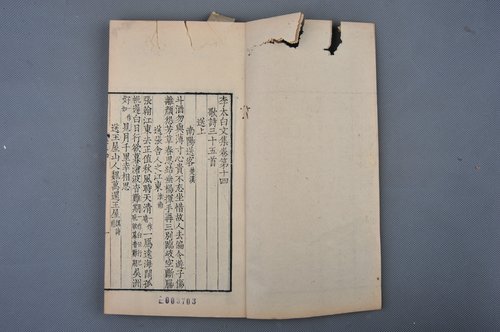 李太白文集卷第十四
歌詩三十五首
送上
南陽送客
斗酒勿與薄寸心貴不忘坐惜故人去偏令遊子傷
離顏怨芳草春思結垂楊揮手再三別臨岐空斷腸
送張舍人之江東
張翰江東去正值秋風時天清一鴈遠海闊孤
帆遲白日行欲暮滄波杳難期吳洲
好見月千里幸相思
送王屋山人魏萬還王屋